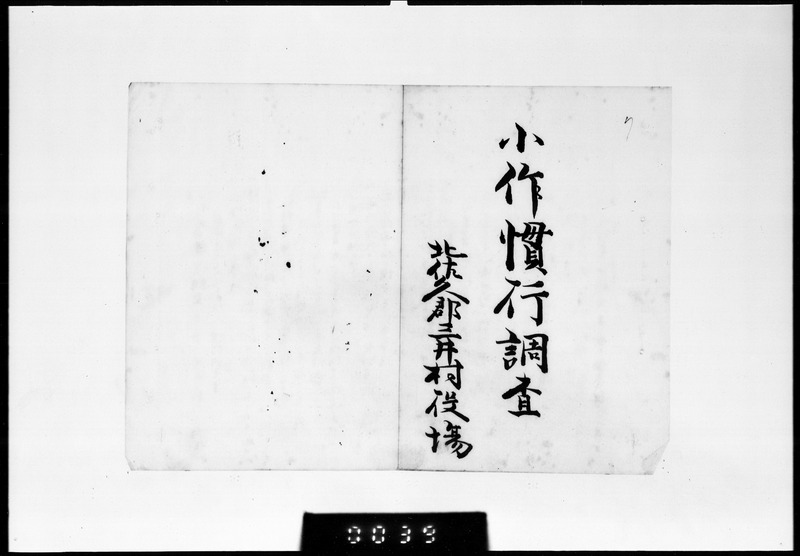 小作慣行調査
北佐久郡三井村役場
0039